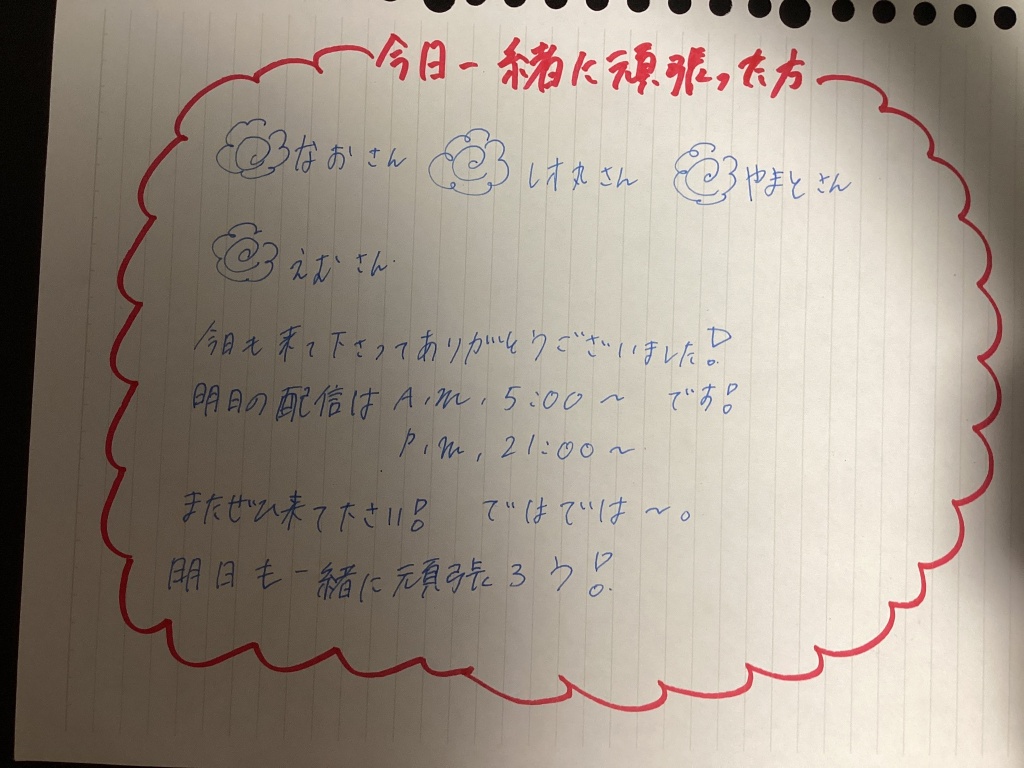 今日一緒に頑張った方
なおさん レオ丸さん やまとさん
えむさん
今日も来て下さってありがとうございました!
明日の配信は A.m. 5:00～ です!
P.m. 21:00～
またぜひ来て下さい! ではでは～。
明日も一緒に頑張ろう!